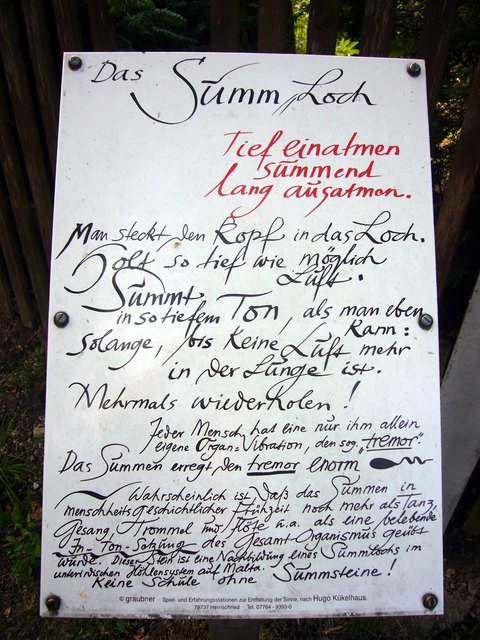 Das Summ„Loch
Tief einatmen
summend
lang ausatmen.
Man steckt den Kopf in das Loch.
Holt so tief wie möglich
Luft.
Summt,
in so tiefem Ton, als man eben
kann:
solange, bis keine Luft mehr
in der Lunge ist.
Mehrmals wiederholen!
Jeder Mensch hat eine nur ihm allein
eigene Organ=Vibration, den sog. "tremor"
Das Summen erregt den tremor enorm
Wahrscheinlich ist, daß das Summen in
menschheitsgeschichtlicher Frühzeit noch mehr als Tanz,
Gesang, Trommel und Flöte u.a. als eine belebende
In-Ton-Setzung des Gesamt Organismus geübt
wurde. Dieser Stein ist eine Nachbildung eines Summlochs im
unterirdischen Höhlensystem auf Malta.
Keine Schule ohne Summsteine!
© graubner · Spiel- und Erfahrungsstationen zur Entfaltung der Sinne, nach Hugo Kükelhaus
79737 Herrischried · Tel. 07764 - 9393-0